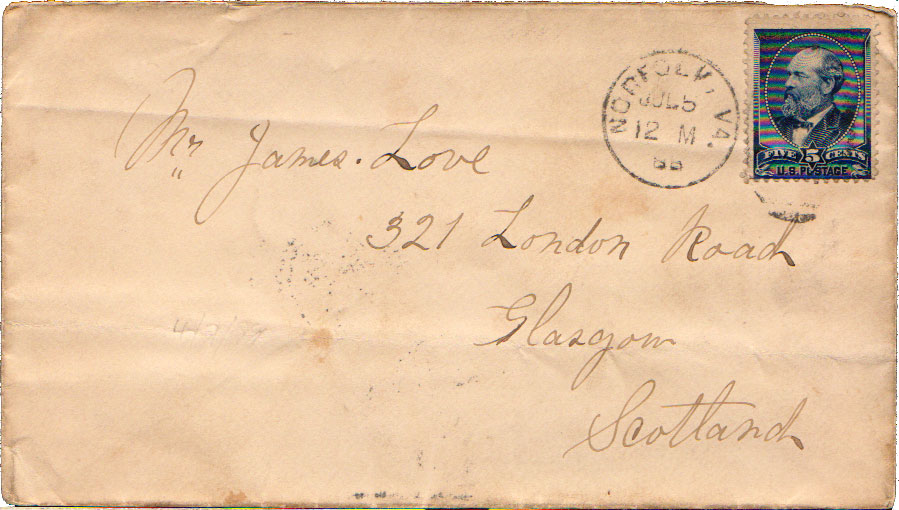 NORFOLK, VA.
JUL 5
12 M
FIVE 5 CENTS
U.S. POSTAGE
Mr James. Love
321 London Road
Glasgow
Scotland